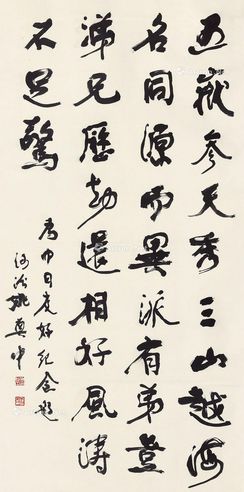 五嶽參天秀三山越海
名同源而異派有弟豈
兄歷劫還相好風濤
不足驚
為中日友好紀念題
河汾姚奠中